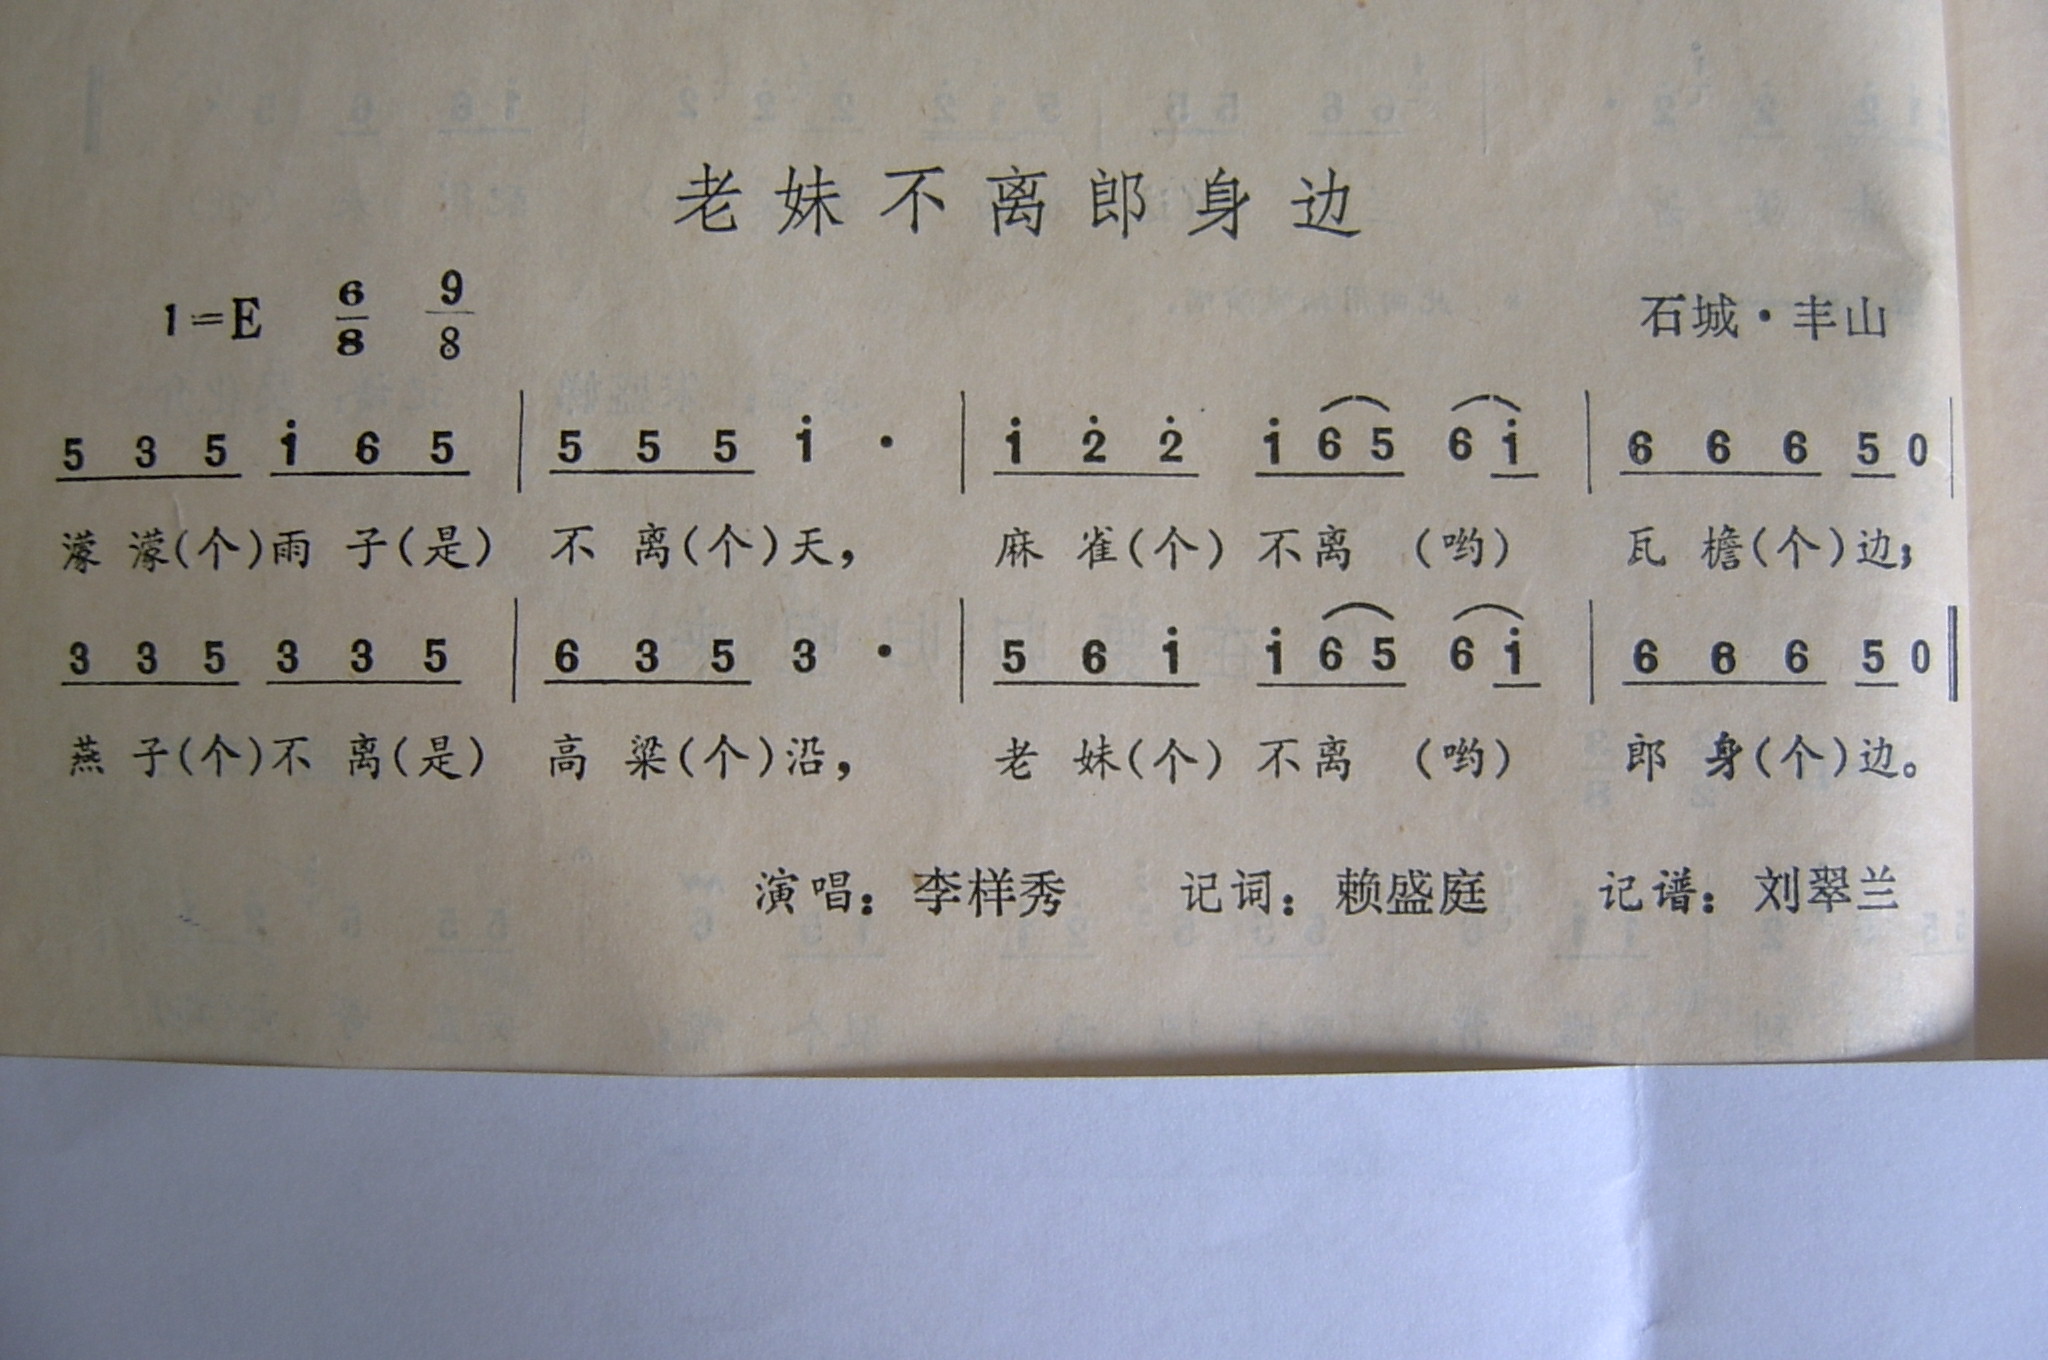 老妹不离郎身边
1=E 6/8 9/8 石城·丰山
5 3 5 i 6 5 | 5 5 5 i · | i 2̇ 2̇ i 6 5 6 i | 6 6 6 5 0 |
濛 濛(个)雨 子(是) 不 离(个)天， 麻 雀(个) 不离 (哟) 瓦 檐(个)边；
3 3 5 3 3 5 | 6 3 5 3 · | 5 6 i i 6 5 6 i | 6 6 6 5 0 ‖
燕 子(个)不 离(是) 高 梁(个)沿， 老 妹(个) 不离 (哟) 郎 身(个)边。
演唱：李样秀 记词：赖盛庭 记谱：刘翠兰